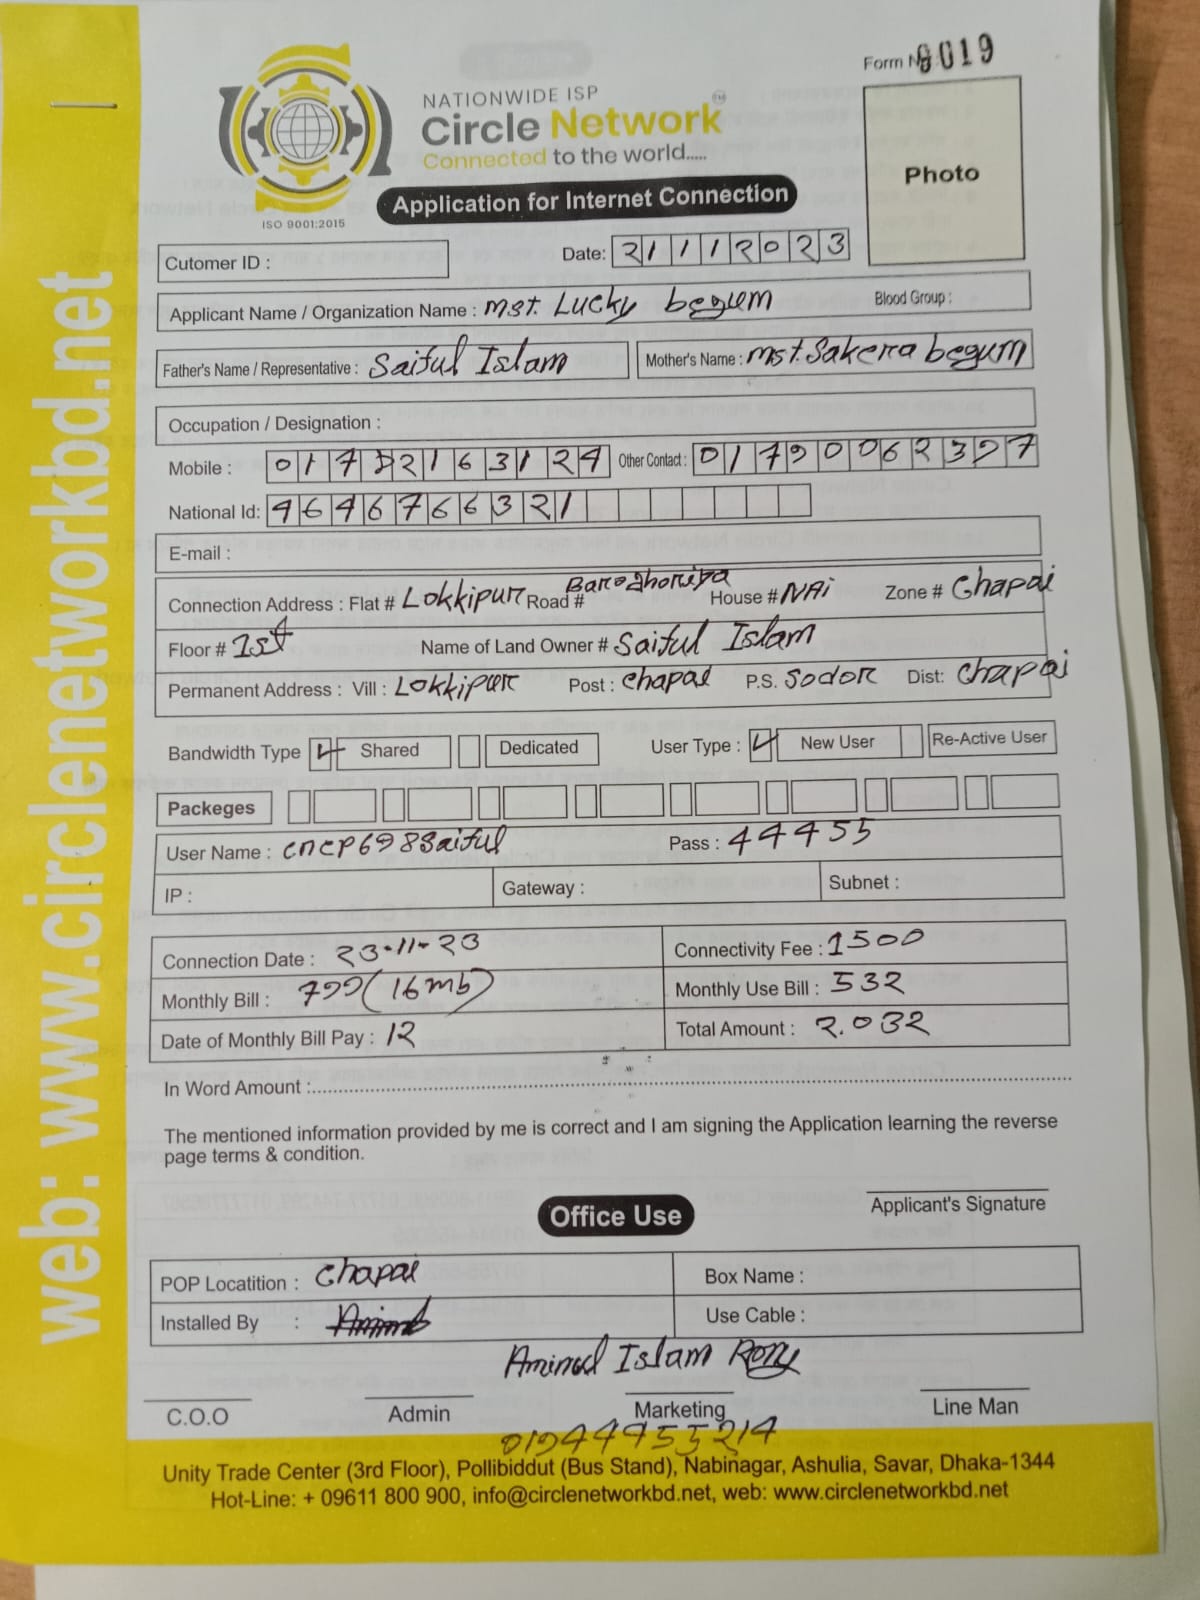 Form No 9019
NATIONWIDE ISP
Circle Network TM
Connected to the world.....
ISO 9001:2015
Application for Internet Connection
Photo
Cutomer ID :
Date: 21112023
Applicant Name / Organization Name : Mst. Lucky begum Blood Group :
Father's Name / Representative : Saiful Islam Mother's Name : Mst. Sakera begum
Occupation / Designation :
Mobile : Other Contact :
National Id: 4646766321
E-mail :
Connection Address : Flat # Lokkipur Road # House # NAi Zone # Chapai
Floor # 1st Name of Land Owner # Saiful Islam
Permanent Address : Vill : Lokkipur Post : Chapai P.S. Sodor Dist: Chapai
Bandwidth Type Shared Dedicated User Type : New User Re-Active User
Packeges
User Name : Pass : 44455
IP : Gateway : Subnet :
Connection Date : 23-11-23 Connectivity Fee : 1500
Monthly Bill : 799 (16mb) Monthly Use Bill : 532
Date of Monthly Bill Pay : 12 Total Amount : 2.032
In Word Amount :
The mentioned information provided by me is correct and I am signing the Application learning the reverse
page terms & condition.
Applicant's Signature
Office Use
POP Locatition : Chapai Box Name :
Installed By : Use Cable :
Aminul Islam Rony
C.O.O Admin Marketing Line Man
Unity Trade Center (3rd Floor), Pollibiddut (Bus Stand), Nabinagar, Ashulia, Savar, Dhaka-1344
Hot-Line: + 09611 800 900, info@circlenetworkbd.net, web: www.circlenetworkbd.net
web: www.circlenetworkbd.net